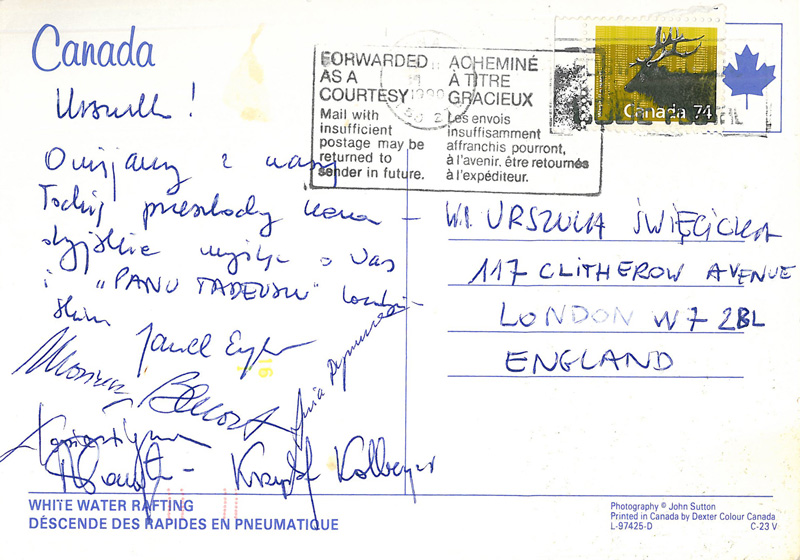 Canada
Urszulko!
Omijamy z
Todzią przeszkody kana-
dyjskie myśląc o Was
i "PANU TADEUSZU" londyń-
skim
Krzysztof Kolberger
FORWARDED
AS A
COURTESY
Mail with
insufficient
postage may be
returned to
sender in future.
ACHEMINÉ
À TITRE
GRACIEUX
Les envois
insuffisamment
affranchis pourront,
à l'avenir, être retournés
à l'expéditeur.
Canada 74
W.P. URSZULA ŚWIĘCICKA
117 CLITHEROW AVENUE
LONDON W7 2BL
ENGLAND
WHITE WATER RAFTING
DÉSCENDE DES RAPIDES EN PNEUMATIQUE
Photography © John Sutton
Printed in Canada by Dexter Colour Canada
L-97425-D C-23 V